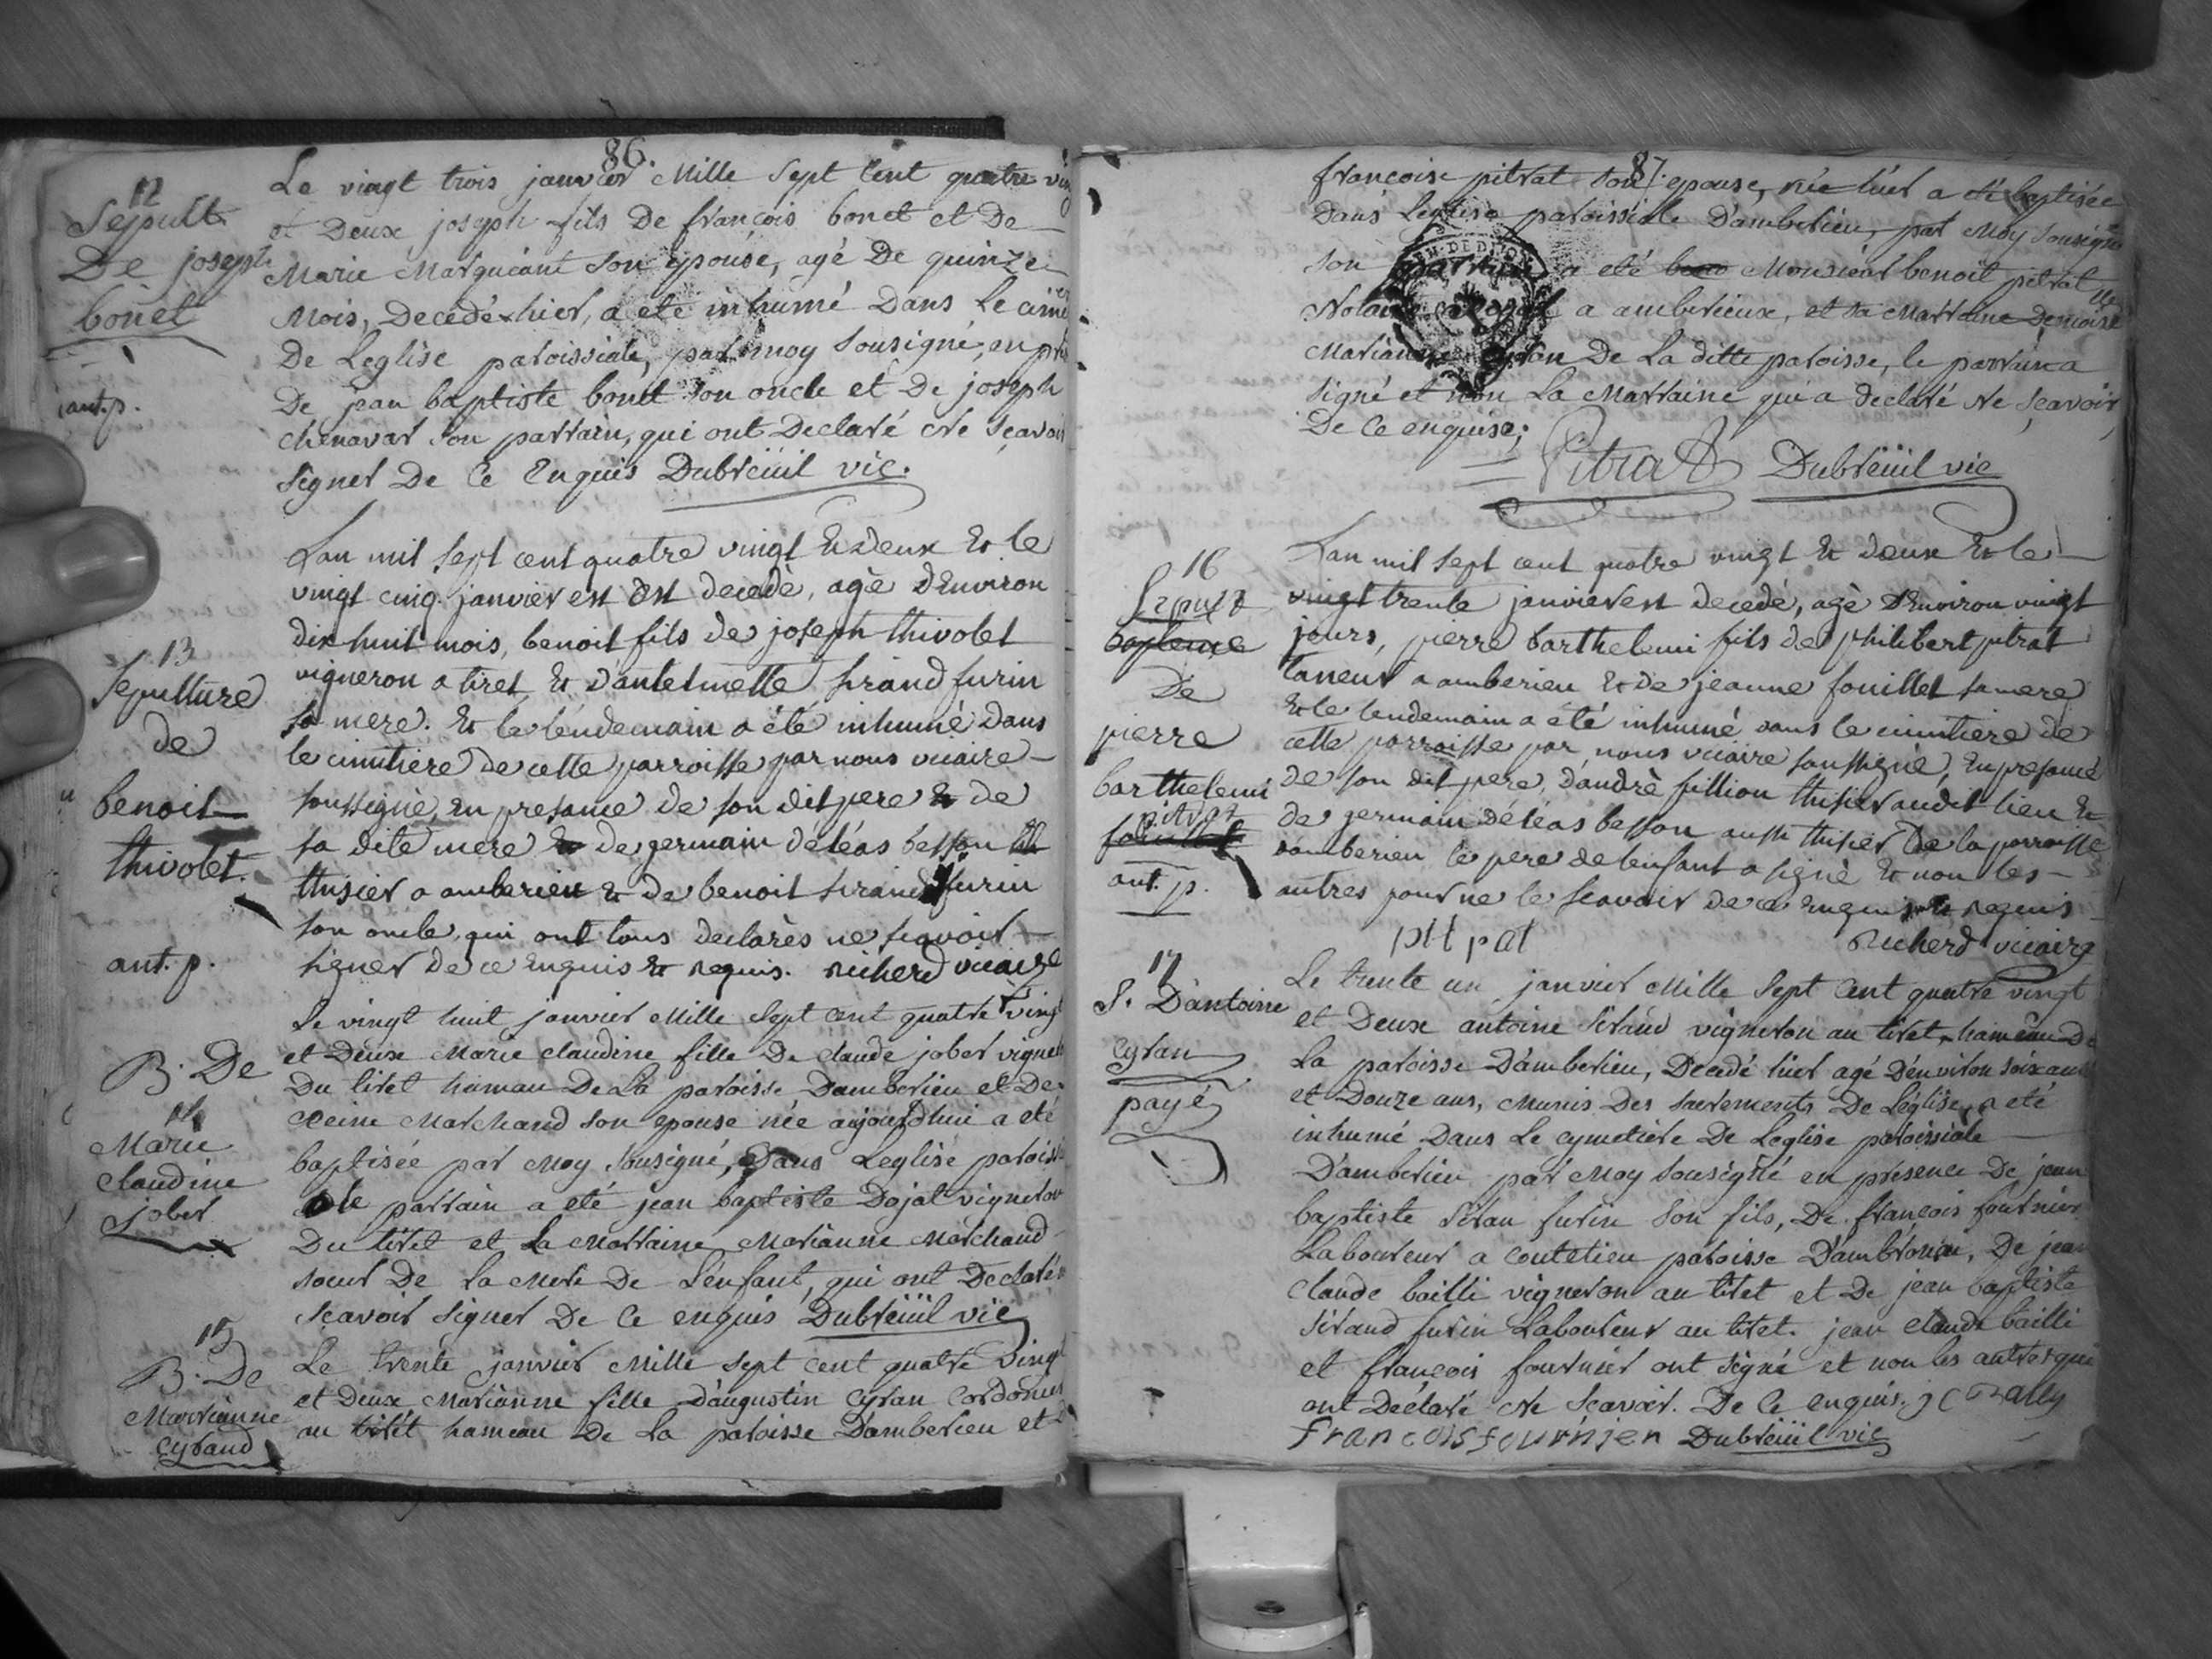 86.
12
Sepult
De joseph
bonet
ant. p.
Le vingt trois janvier Mille Sept Cent quatre ving
et Deux joseph fils De françois bonet et De
Marie Marguéant son epouse, agé De quinze
Mois, Decedé hier, a eté inhumé Dans Le cime
De Leglise paroissiale, par moy Sousigné, en pr
De jean baptiste bonet son oncle et De joseph
chenavar son parrain, qui ont Declaré Ne Sçavoi
Signer De Ce Enquis Dubreüil vic.
13
Sepulture
de
benoit
thivolet.
ant. p.
Lan mil sept cent quatre vingt Et deux Et le
vingt cinq janvier est decedè, agè dEnviron
dix huit mois, benoit fils de joseph thivolet
vigneron a tiret, Et dantelmette sirand furin
sa mere. Et le lendemain a été inhumè dans
le cimitiere de cette parroisse par nous vicaire
soussignè, en presance de son dit pere de
sa dite mere de germain deléas besson
thisier a amberieu Et de benoit sirand furin
son oncle, qui ont tous declarès ne sçavoir
signer de ce Enquis Et requis. Richerd vicaire
B. De
14
Marie
claudine
jober
Le vingt huit janvier Mille Sept cent quatre ving
et Deux Marie claudine fille De claude jober vigne
Du tiret hamau De La paroisse Damberieu et De
Reine Marchand son epouse née aujourdhui a eté
baptisée par Moy Sousigné, Dans Leglise paroiss
Le parrain a eté jean baptiste Dojat vigneron
Du tiret et La Marraine Marianne Marchand
soeur De La Mere De L'enfant, qui ont Declaré
Sçavoir Signer De Ce enquis Dubreüil vic
15
B. De
Marrianne
Cyraud
Le trente janvier Mille Sept cent quatre vingt
et Deux Marianne fille D'augustin Cyran Cordonier
au tiret hameau De La paroisse D'amberieu et
87.
francoise pitrat son epouse, née hier a eté baptisée
Dans Leglise paroissiale D'amberieu, par Moy Sousigné
Son parrain a eté Monsieur benoit pitrat
Notaire Royal a amberieux, et sa Marraine Demoiselle
Marianne Cyran De La ditte paroisse, le parrain a
signé et non La Marraine qui a declaré Ne Sçavoir,
De Ce enquise.
Pitrat Dubreüil vic
16
Sepult
bapteme
De
pierre
barthelemi
pitrat
ant. p.
Lan mil sept cent quatre vingt Et deux Et le
vingt trente janvier est decedè, agè dEnviron vingt
jours, pierre barthelemi fils de philibert pitrat
taneur a amberieu Et de jeanne fouillet sa mere
Et le lendemain a été inhumé dans le cimitiere de
cette parroisse par nous vicaire soussignè, En presance
de son dit pere, dandrè fillion thisier audit lieu Et
de germain deléas besson aussi thisier de la parroisse
damberieu le pere de lenfant a signè Et non les
autres pour ne le scavoir de ce Enquis Et requis
pH pat Richerd vicaire
17
S. D'antoine
cyran
payé
Le trente un janvier Mille Sept Cent quatre vingt
et Deux antoine Siraud vigneron au tiret, hameau De
La paroisse D'amberieu, Decedé hier agé D'environ soixante
et Douze ans, Munis Des Sacrements De L'église, a eté
inhumé Dans Le cymetiere De Leglise paroissiale
D'amberieu par Moy Sousigné en presence De jean
baptiste Siran furin Son fils, De françois fournier
Laboureur a Coutelieu paroisse D'ambronai, De jean
Claude bailli vigneron au tiret et De jean baptiste
Siraud furin Laboureur au tiret. jean claude bailli
et françois fournier ont signé et non les autres qui
ont Declaré Ne Scavoir. De Ce enquis. j C Bally
françois fournier Dubreüil vic